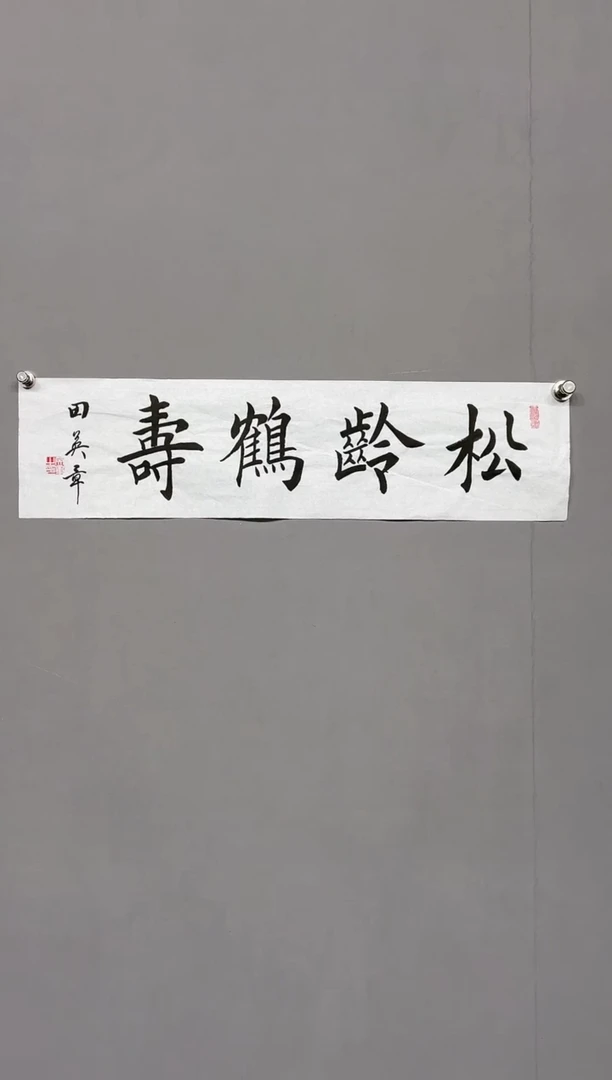 松齡鶴壽
田英章